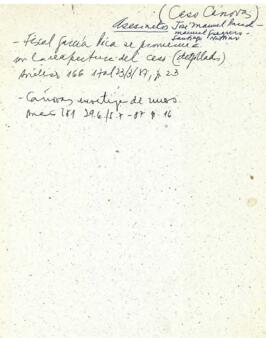 (Caso Cánovas)
Asesinatos José Manuel Parada
Manuel Guerrero
Santiago Nattino
- Fiscal García Pica se pronuncia
la reapertura del caso (degollados)
Análisis 166 17 al 23/3/87, p. 23
- Cánovas investiga de nuevo.
p. 16